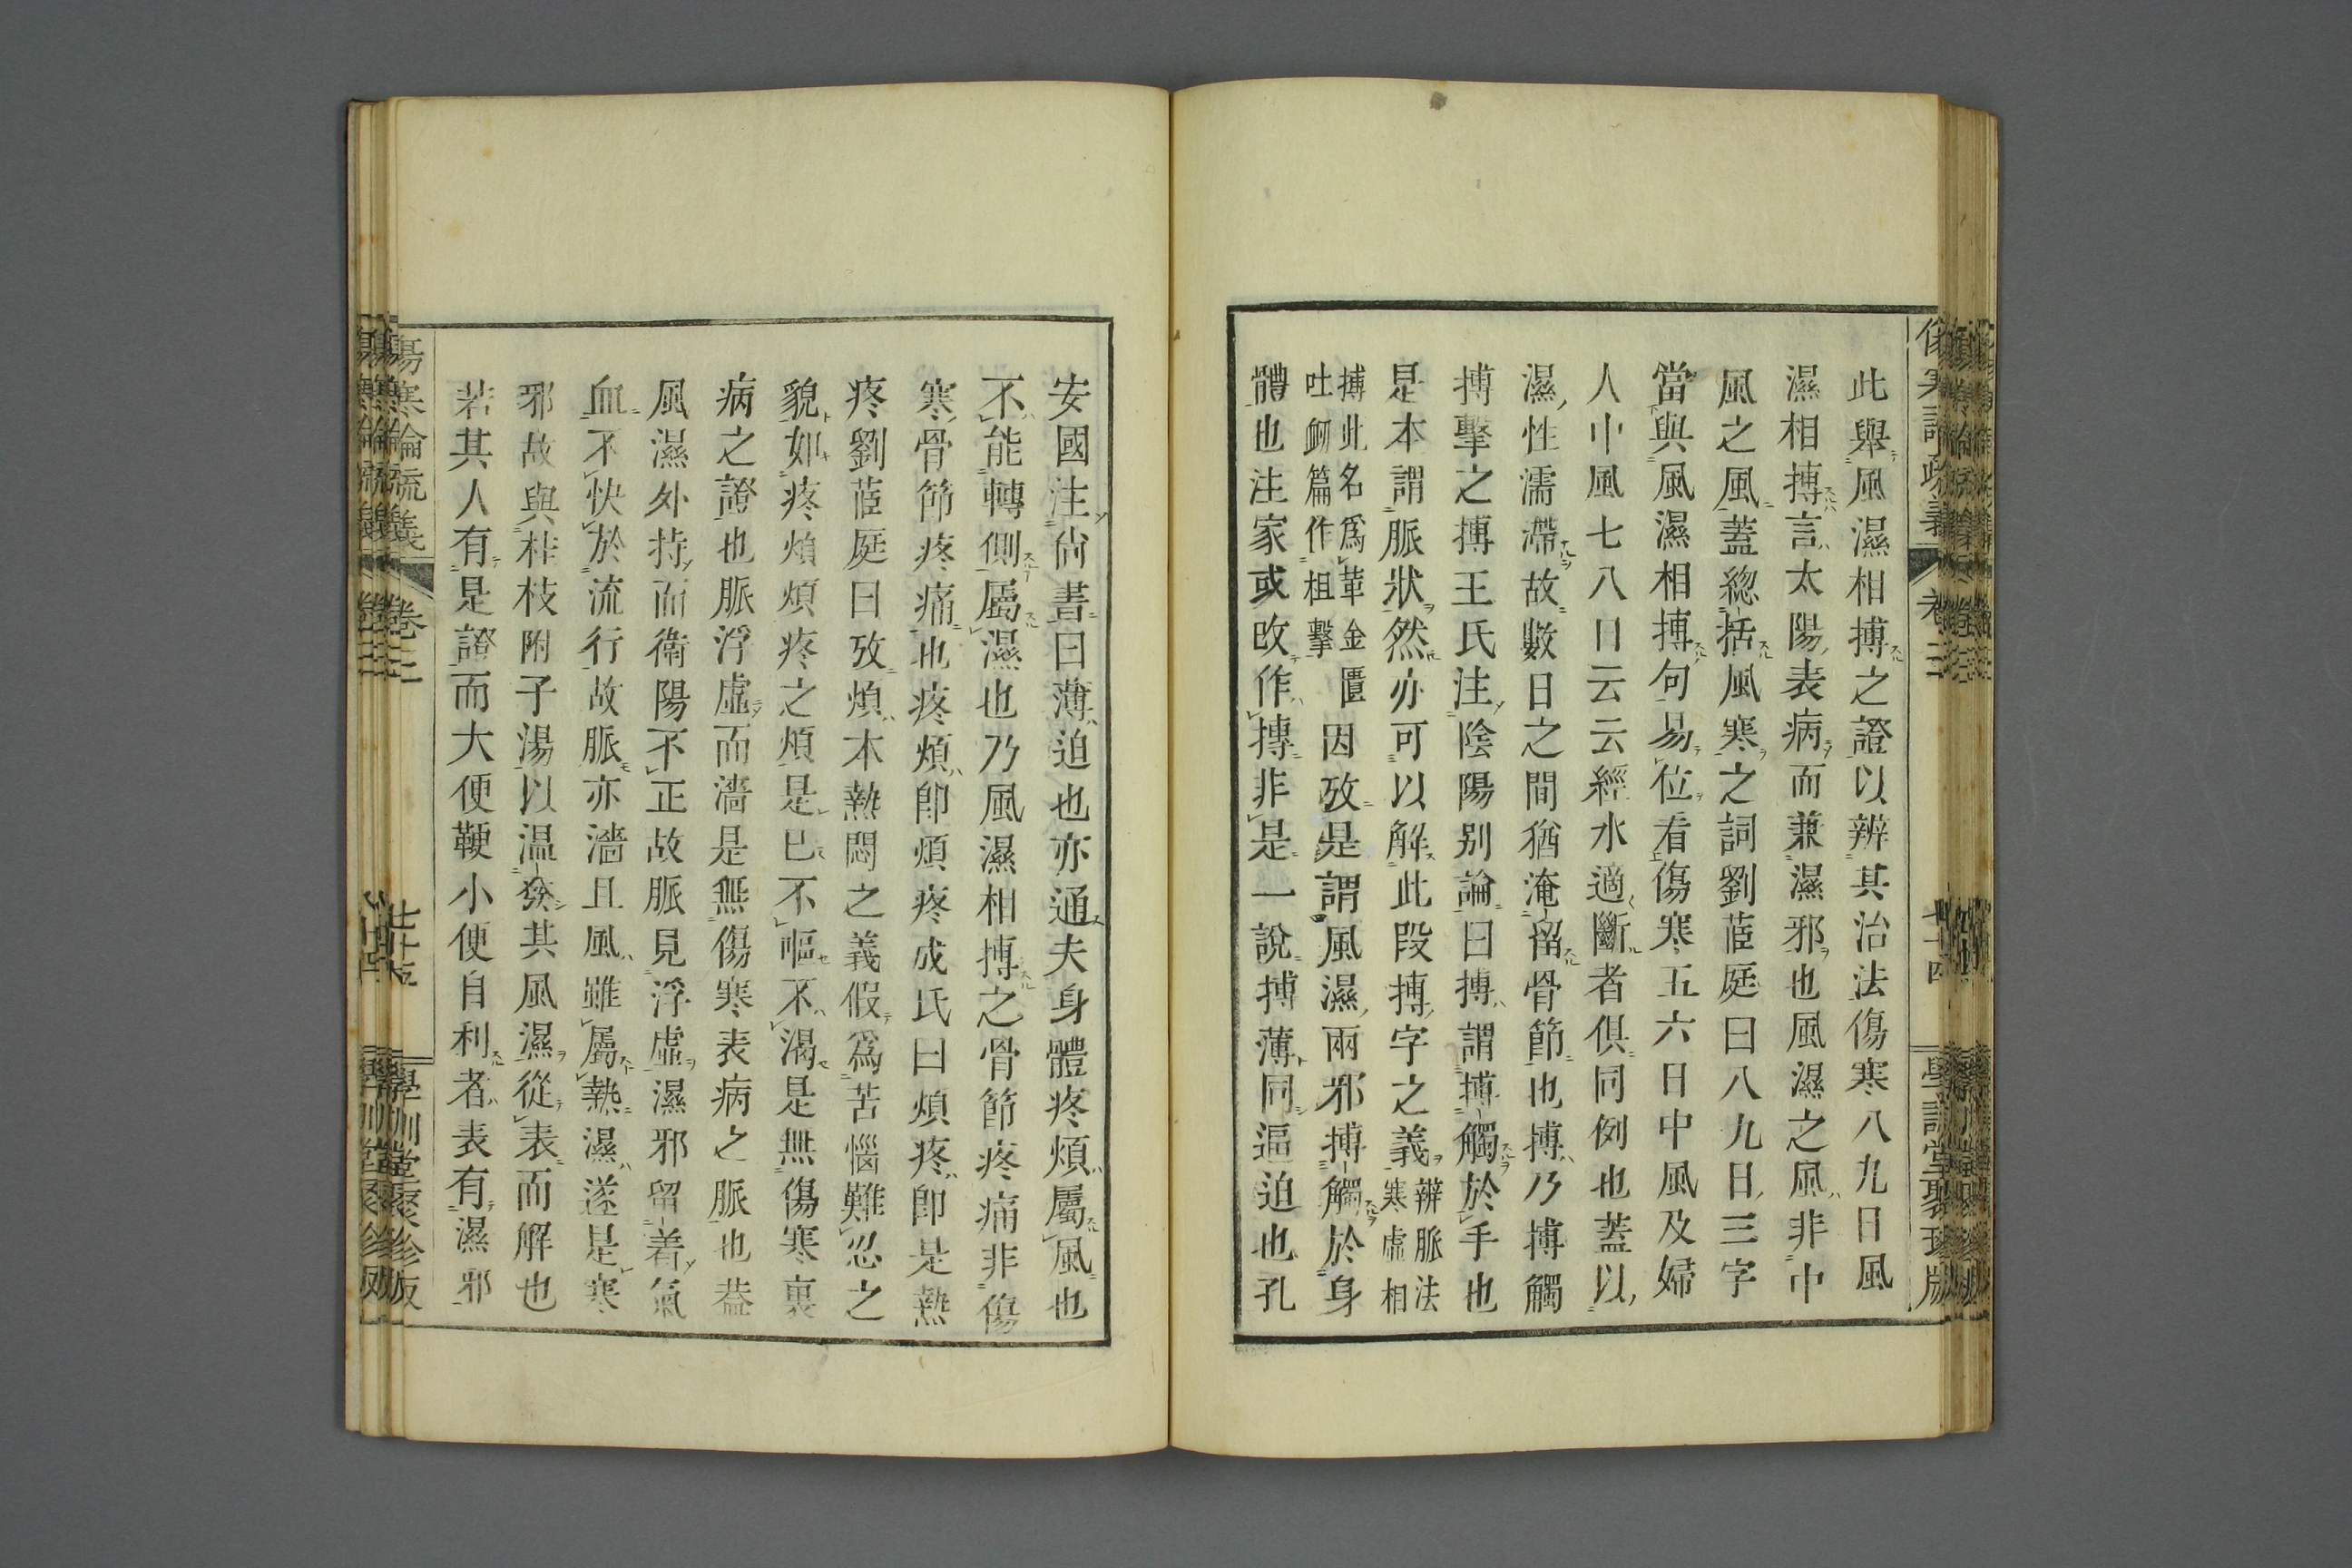 此舉風濕相搏之證以辨其治法傷寒八九日風
濕相搏言太陽表病而兼濕邪也風濕之風非中
風之風蓋緫括風寒之詞劉茝庭曰八九日三字
當與風濕相搏句易位看傷寒五六日中風及婦
人中風七八日云云經水適斷者俱同例也蓋以
濕性濡滯故數日之間猶淹留骨節也搏乃搏觸
搏擊之搏王氏注陰陽別論曰搏謂搏觸於手也
是本謂脈狀然亦可以解此段搏字之義辨脈法寒虛相
搏此名爲革金匱吐衄篇作相擊因攷是謂風濕兩邪搏觸於身
體也注家或改作摶非是一說搏薄同逼迫也孔
安國注尙書曰薄迫也亦通夫身體疼煩屬風也
不能轉側屬濕也乃風濕相搏之骨節疼痛非傷
寒骨節疼痛也疼煩卽煩疼成氏曰煩疼卽是熱
疼劉茝庭曰攷煩本熱悶之義假爲苦惱難忍之
貌如疼煩煩疼之煩是已不嘔不渴是無傷寒裏
病之證也脈浮虛而濇是無傷寒表病之脈也蓋
風濕外持而衛陽不正故脈見浮虛濕邪留着氣
血不快於流行故脈亦濇且風雖屬熱濕遂是寒
邪故與桂枝附子湯以温發其風濕從表而解也
若其人有是證而大便鞕小便自利者表有濕邪
傷寒論疏義 卷三 七十五 學訓堂聚珍版